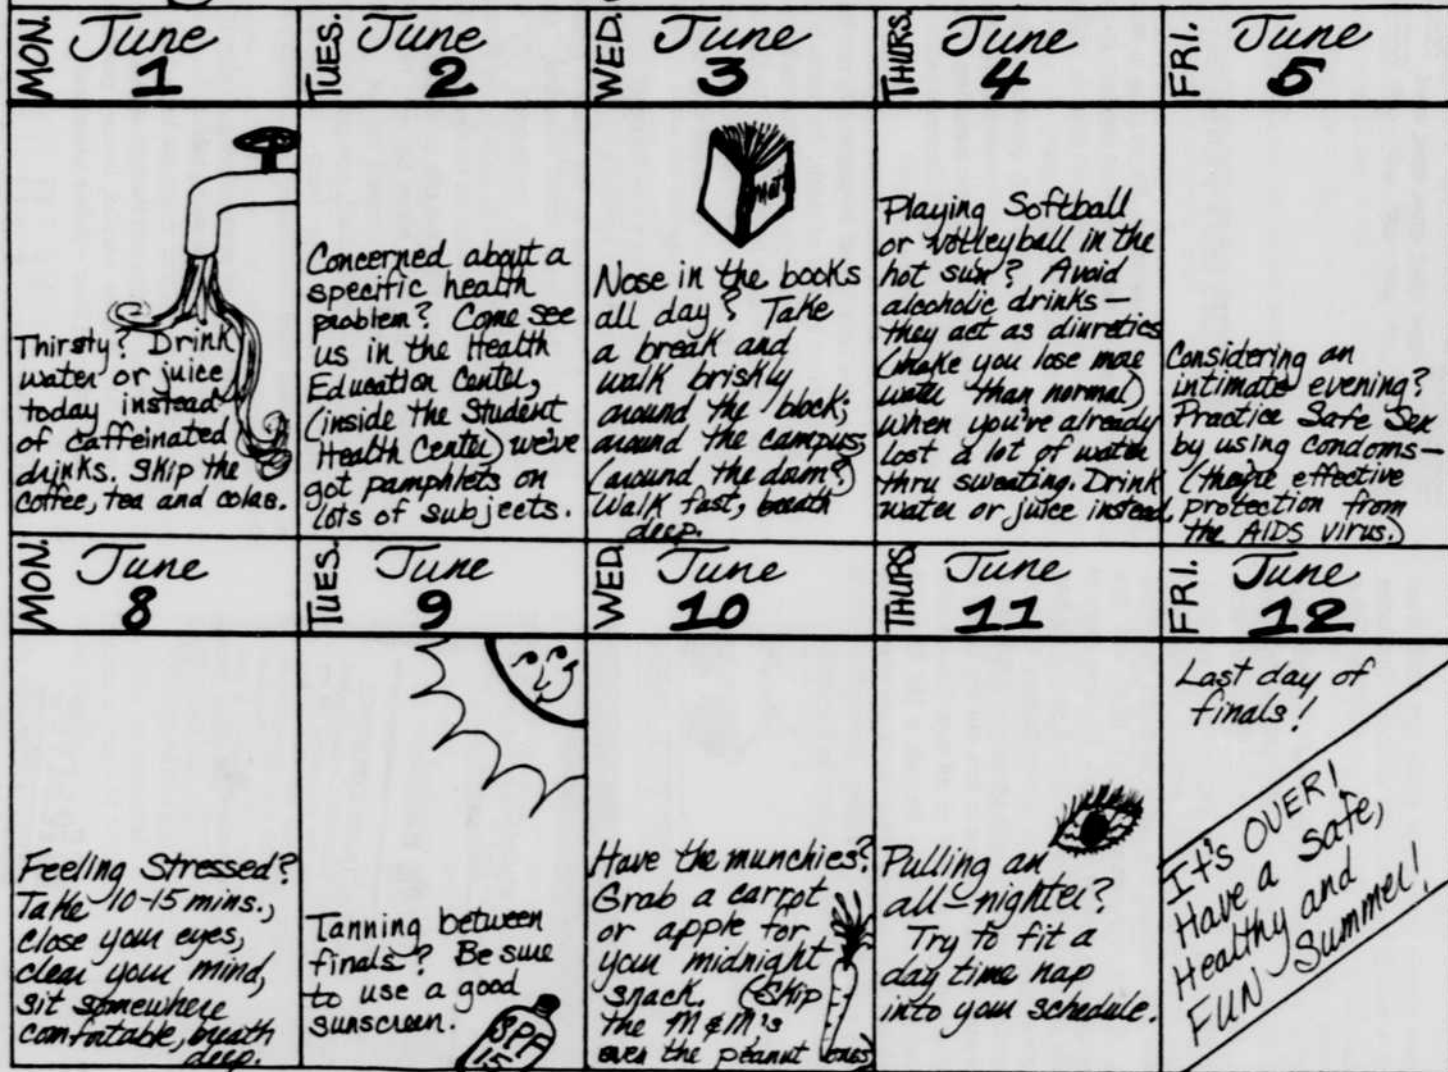 MON. June
1
Thirsty? Drink
water or juice
today instead
of caffeinated
drinks. Skip the
coffee, tea and colas.
TUES. June
2
Concerned about a
specific health
problem? Come see
us in the Health
Education Center,
(inside the Student
Health Center) we've
got pamphlets on
lots of subjects.
WED. June
3
Math
Nose in the books
all day? Take
a break and
walk briskly
around the block;
around the campus;
(around the dorm?)
Walk fast, breath
deep.
THURS. June
4
Playing Softball
or volleyball in the
hot sun? Avoid
alcoholic drinks—
they act as diuretics
(make you lose more
water than normal)
when you've already
lost a lot of water
thru sweating. Drink
water or juice instead.
FRI. June
5
Considering an
intimate evening?
Practice Safe Sex
by using condoms—
(they're effective
protection from
the AIDS virus.)
MON. June
8
Feeling Stressed?
Take 10-15 mins.,
close your eyes,
clear your mind,
sit somewhere
comfortable, breath
deep.
TUES. June
9
Tanning between
finals? Be sure
to use a good
sunscreen.
SPF
15
WED. June
10
Have the munchies?
Grab a carrot
or apple for
your midnight
snack. (Skip
the M&M's
even the peanut ones)
THURS. June
11
Pulling an
all-nighter?
Try to fit a
day time nap
into your schedule.
FRI. June
12
Last day of
finals!
It's OVER!
Have a safe,
Healthy and
FUN Summer!